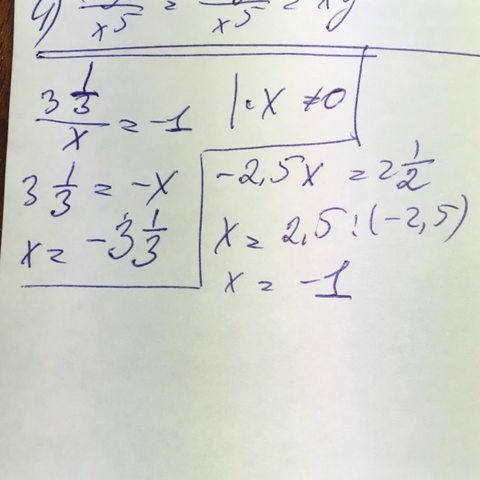 4) /x⁵ = /x⁵ = xy
3 1/3 / x = -1 | · x ≠ 0
3 1/3 = -x
x = -3 1/3
-2,5x = 2 1/2
x = 2,5 : (-2,5)
x = -1